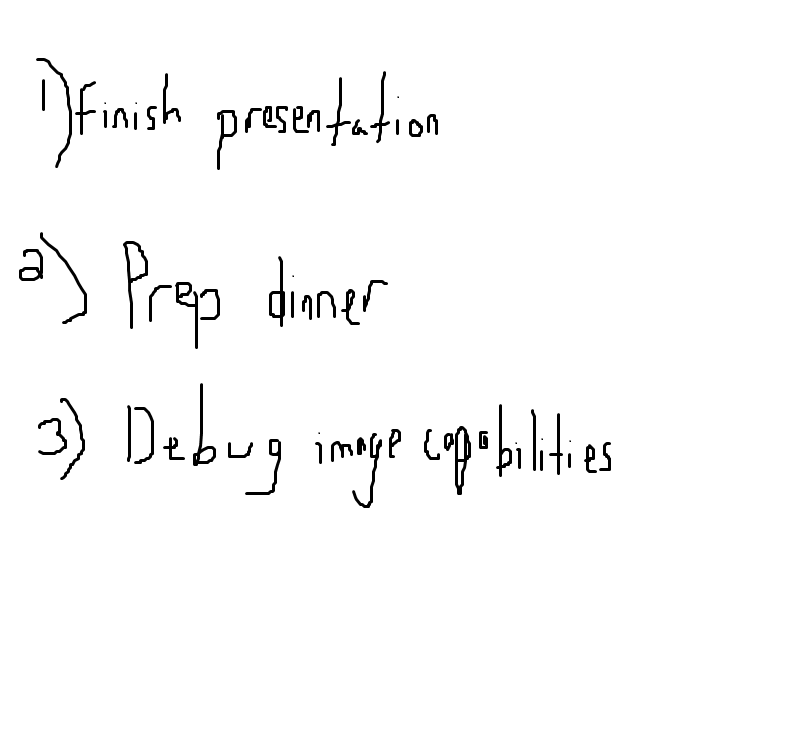 1) Finish presentation
2) Prep dinner
3) Debug image capabilities